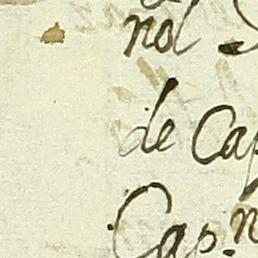 nol
de Cap
Cap.n